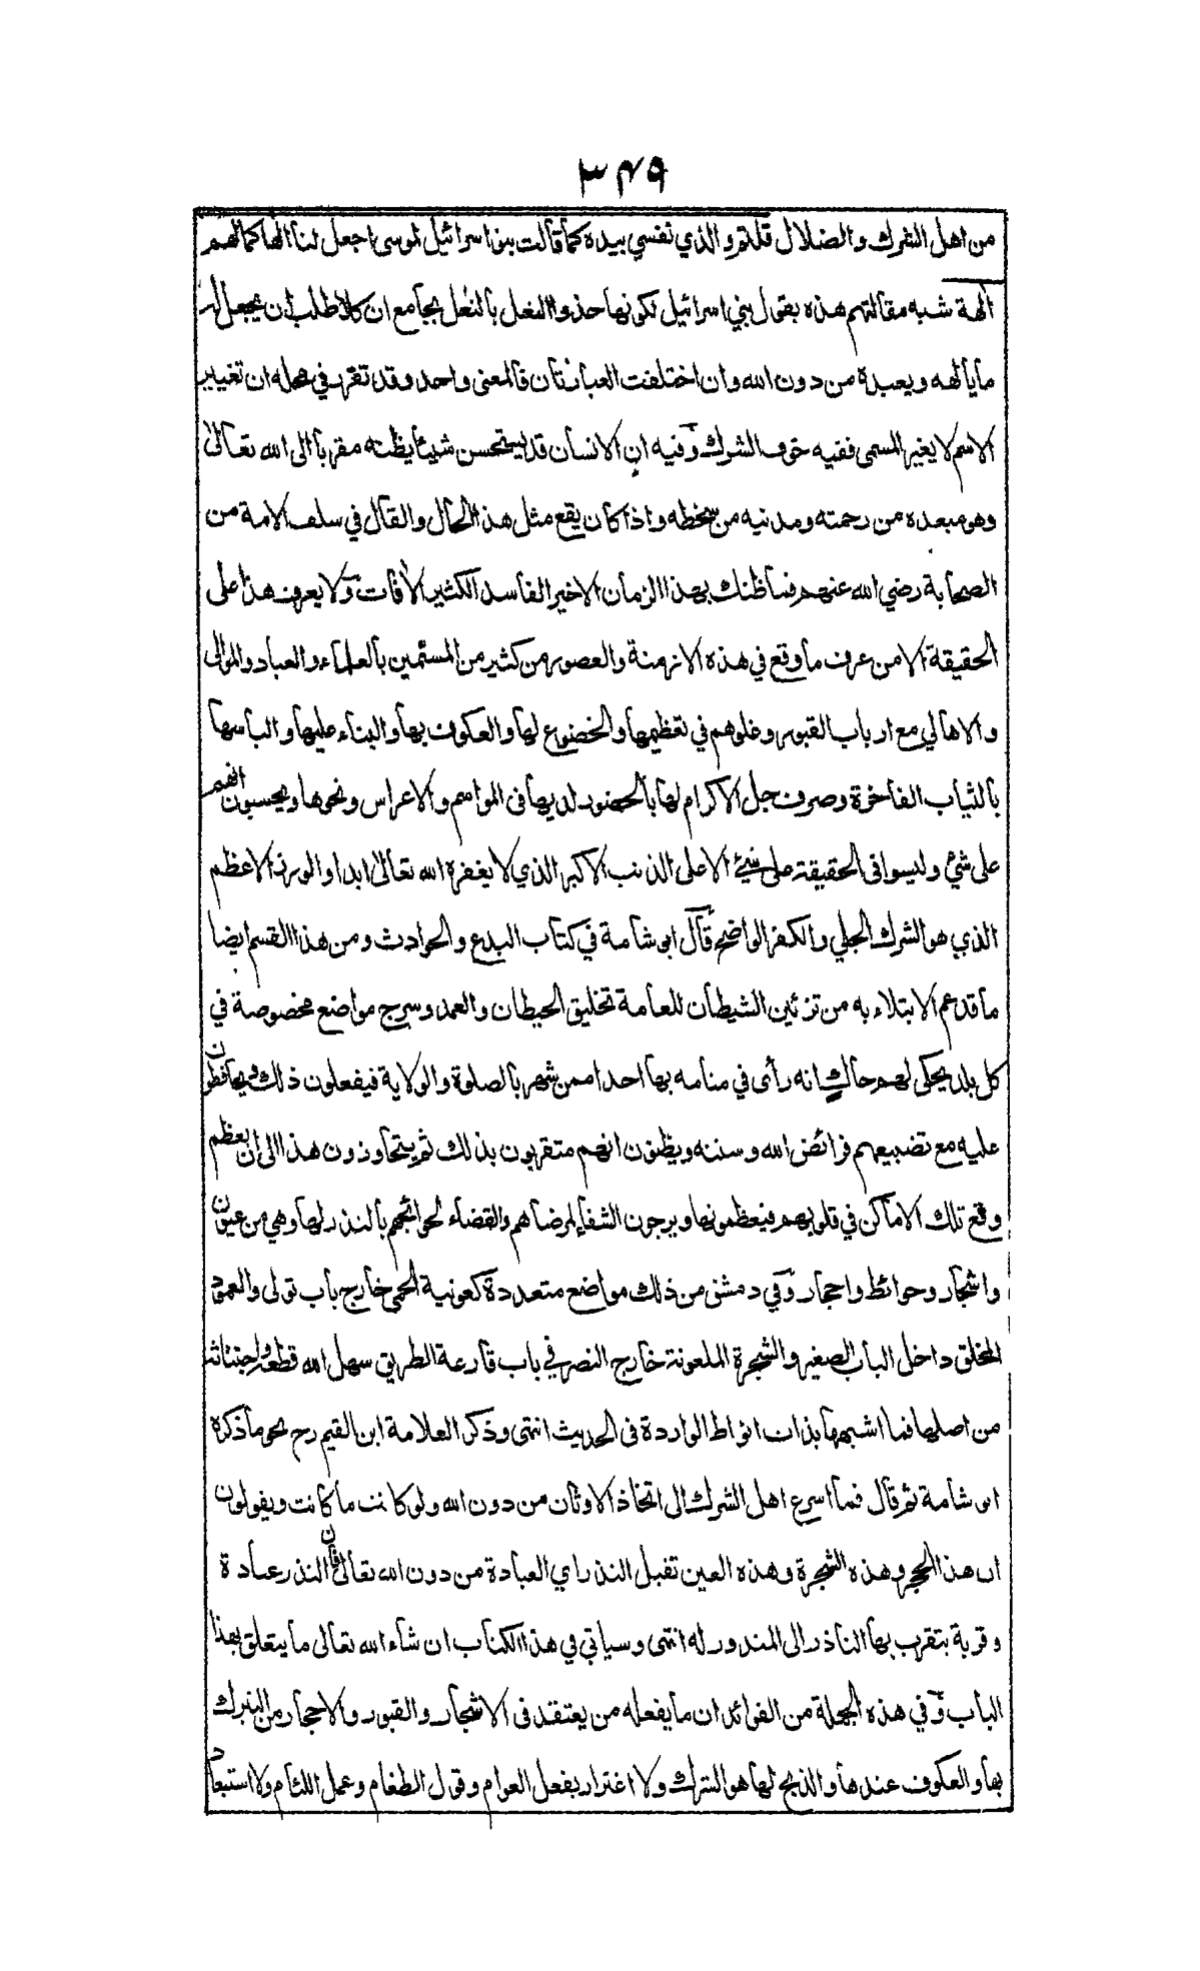 ٣٤٩
من اهل الشرك والضلال قلتم والذي نفسي بيده كما قالت بنو اسرائيل لموسى اجعل لنا الها كما لهم
الهة شبه مقالتهم هذه بقول بني اسرائيل لكونها حذو النعل بالنعل بجامع ان كلا طلب ان يجعل له
ما يألهه ويعبده من دون الله وان اختلفت العبارتان فالمعنى واحد وقد تقرر في محله ان تغيير
الاسم لا يغير المسمى ففيه خوف الشرك وفيه ان الانسان قد يستحسن شيئا يظنه مقربا الى الله تعالى
وهو مبعده من رحمته ومدنيه من سخطه واذا كان يقع مثل هذا الحال والقال في سلف الامة من
الصحابة رضي الله عنهم فما ظنك بهذا الزمان الاخير الفاسد الكثير الآفات ولا يعرف هذا على
الحقيقة الا من عرف ما وقع في هذه الازمنة والعصور من كثير من المسئمين بالعلماء والعباد والموالى
والاهالي مع ارباب القبور وغلوهم في تعظيمها والخضوع لها والعكوف بها والبناء عليها والباسها
بالثياب الفاخرة وصرف جل الاكرام لها بالحضور لديها في المواسم والاعراس ونحوها ويحسبون انهم
على شيء وليسوا في الحقيقة على شئ الا على الذنب الاكبر الذي لا يغفره الله تعالى ابدا والوزر الاعظم
الذي هو الشرك الجلي والكفر الواضح قال ابو شامة في كتاب البدع والحوادث ومن هذا القسم ايضا
ما قد عم الابتلاء به من تزئين الشيطان للعامة تخليق الحيطان والعمد وسرج مواضع مخصوصة في
كل بلد يحكى لهم حاك انه رأى في منامه بها احدا ممن شهر بالصلوة والولاية فيفعلون ذلك ويحافظون
عليه مع تضييعهم فرائض الله وسننه ويظنون انهم متقربون بذلك ثم يتجاوزون هذا الى ان يعظم
وقع تلك الاماكن في قلوبهم فيعظمونها ويرجون الشفاء لمرضاهم والقضاء لحوائجهم بالنذر لها وهي من عيون
واشجار وحوائط واحجار وفي دمشق من ذلك مواضع متعددة كعونية الحمى خارج باب تولى والعمود
المخلق داخل الباب الصغير والشجرة الملعونة خارج النصر في باب قارعة الطريق سهل الله قطعها واجتثاثها
من اصلها فما اشبهها بذات انواط الواردة في الحديث انتهى وذكر العلامة ابن القيم رح نحو ما ذكره
ابو شامة ثم قال فما اسرع اهل الشرك الى اتخاذ الاوثان من دون الله ولو كانت ما كانت ويقولون
ان هذا الحجر وهذه الشجرة وهذه العين تقبل النذر اي العبادة من دون الله تعالى فان النذر عبادة
وقربة يتقرب بها الناذر الى المنذور له انتهى وسيأتي في هذا الكتاب ان شاء الله تعالى ما يتعلق بهذا
الباب وفي هذه الجملة من الفوائد ان ما يفعله من يعتقد في الاشجار والقبور والاحجار من التبرك
بها والعكوف عندها والذبح لها هو الشرك ولا اغترار بفعل العوام وقول الطغام وعمل اللئام ولا استبعاد